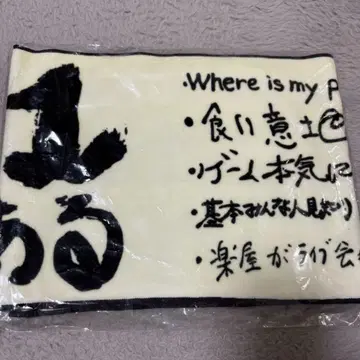 ある
・Where is my p
・食い意地
・ゲーム本気に
・基本みんな人見知り
・楽屋がライブ会